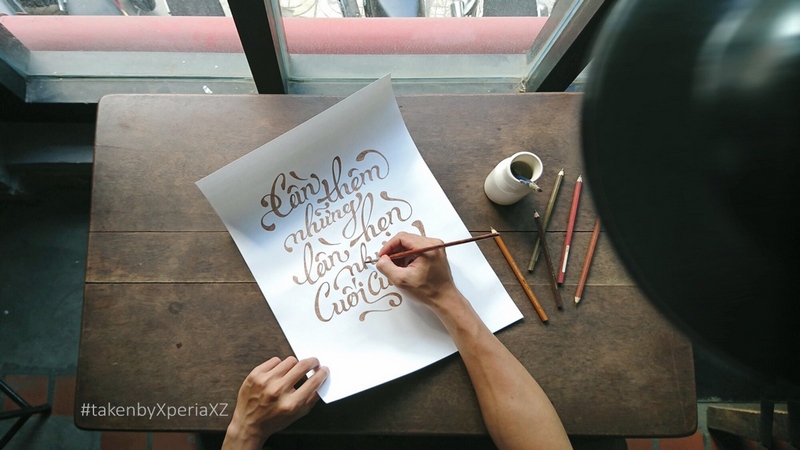 Cần thêm
những
lần hẹn
Cuối
#takenbyXperiaXZ